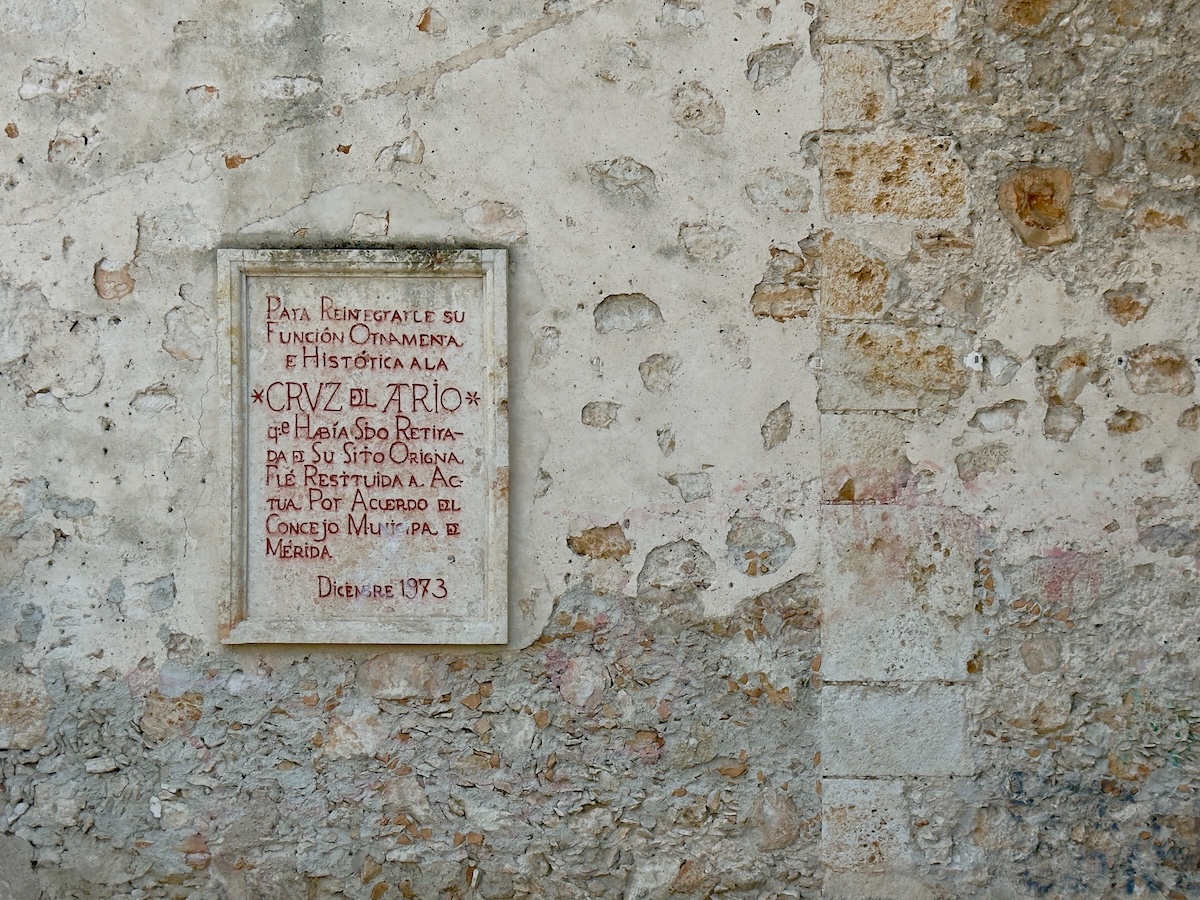 Para Reintegrarle su
Función Ornamental
e Histórica a la
*CRVZ DEL ARIO*
q.e Había Sido Retira-
da de Su Sitio Original
Fué Restituida al Ac-
tual Por Acuerdo del
Concejo Municipal de
Mérida.
Diciembre 1973